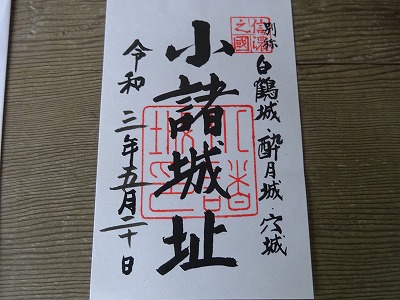 信濃
之國
別称 白鶴城・酔月城・穴城
小諸城址
令和三年五月二十日